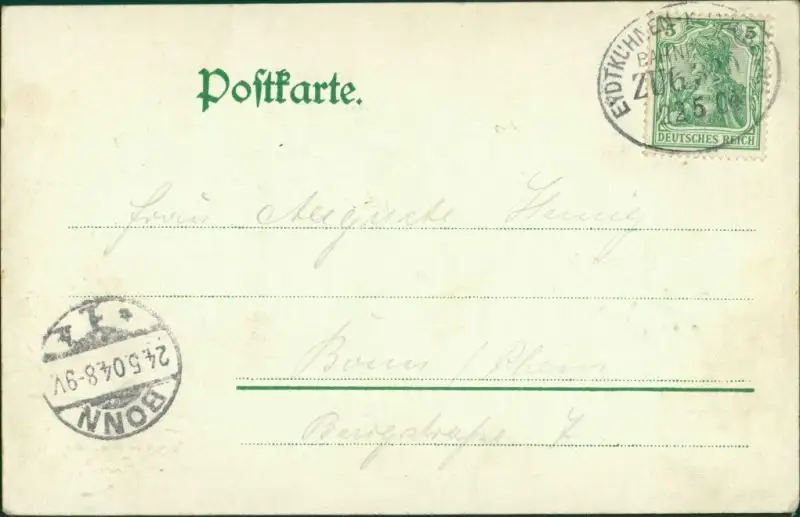 Postkarte.
5 5
DEUTSCHES REICH
EYDTKUHNEN-
ZUG
5 04
Frau Auguste Hennig
Bonn / Rhein
Burgstraße 7
* 1k
24.5.04.8-9V.
BONN